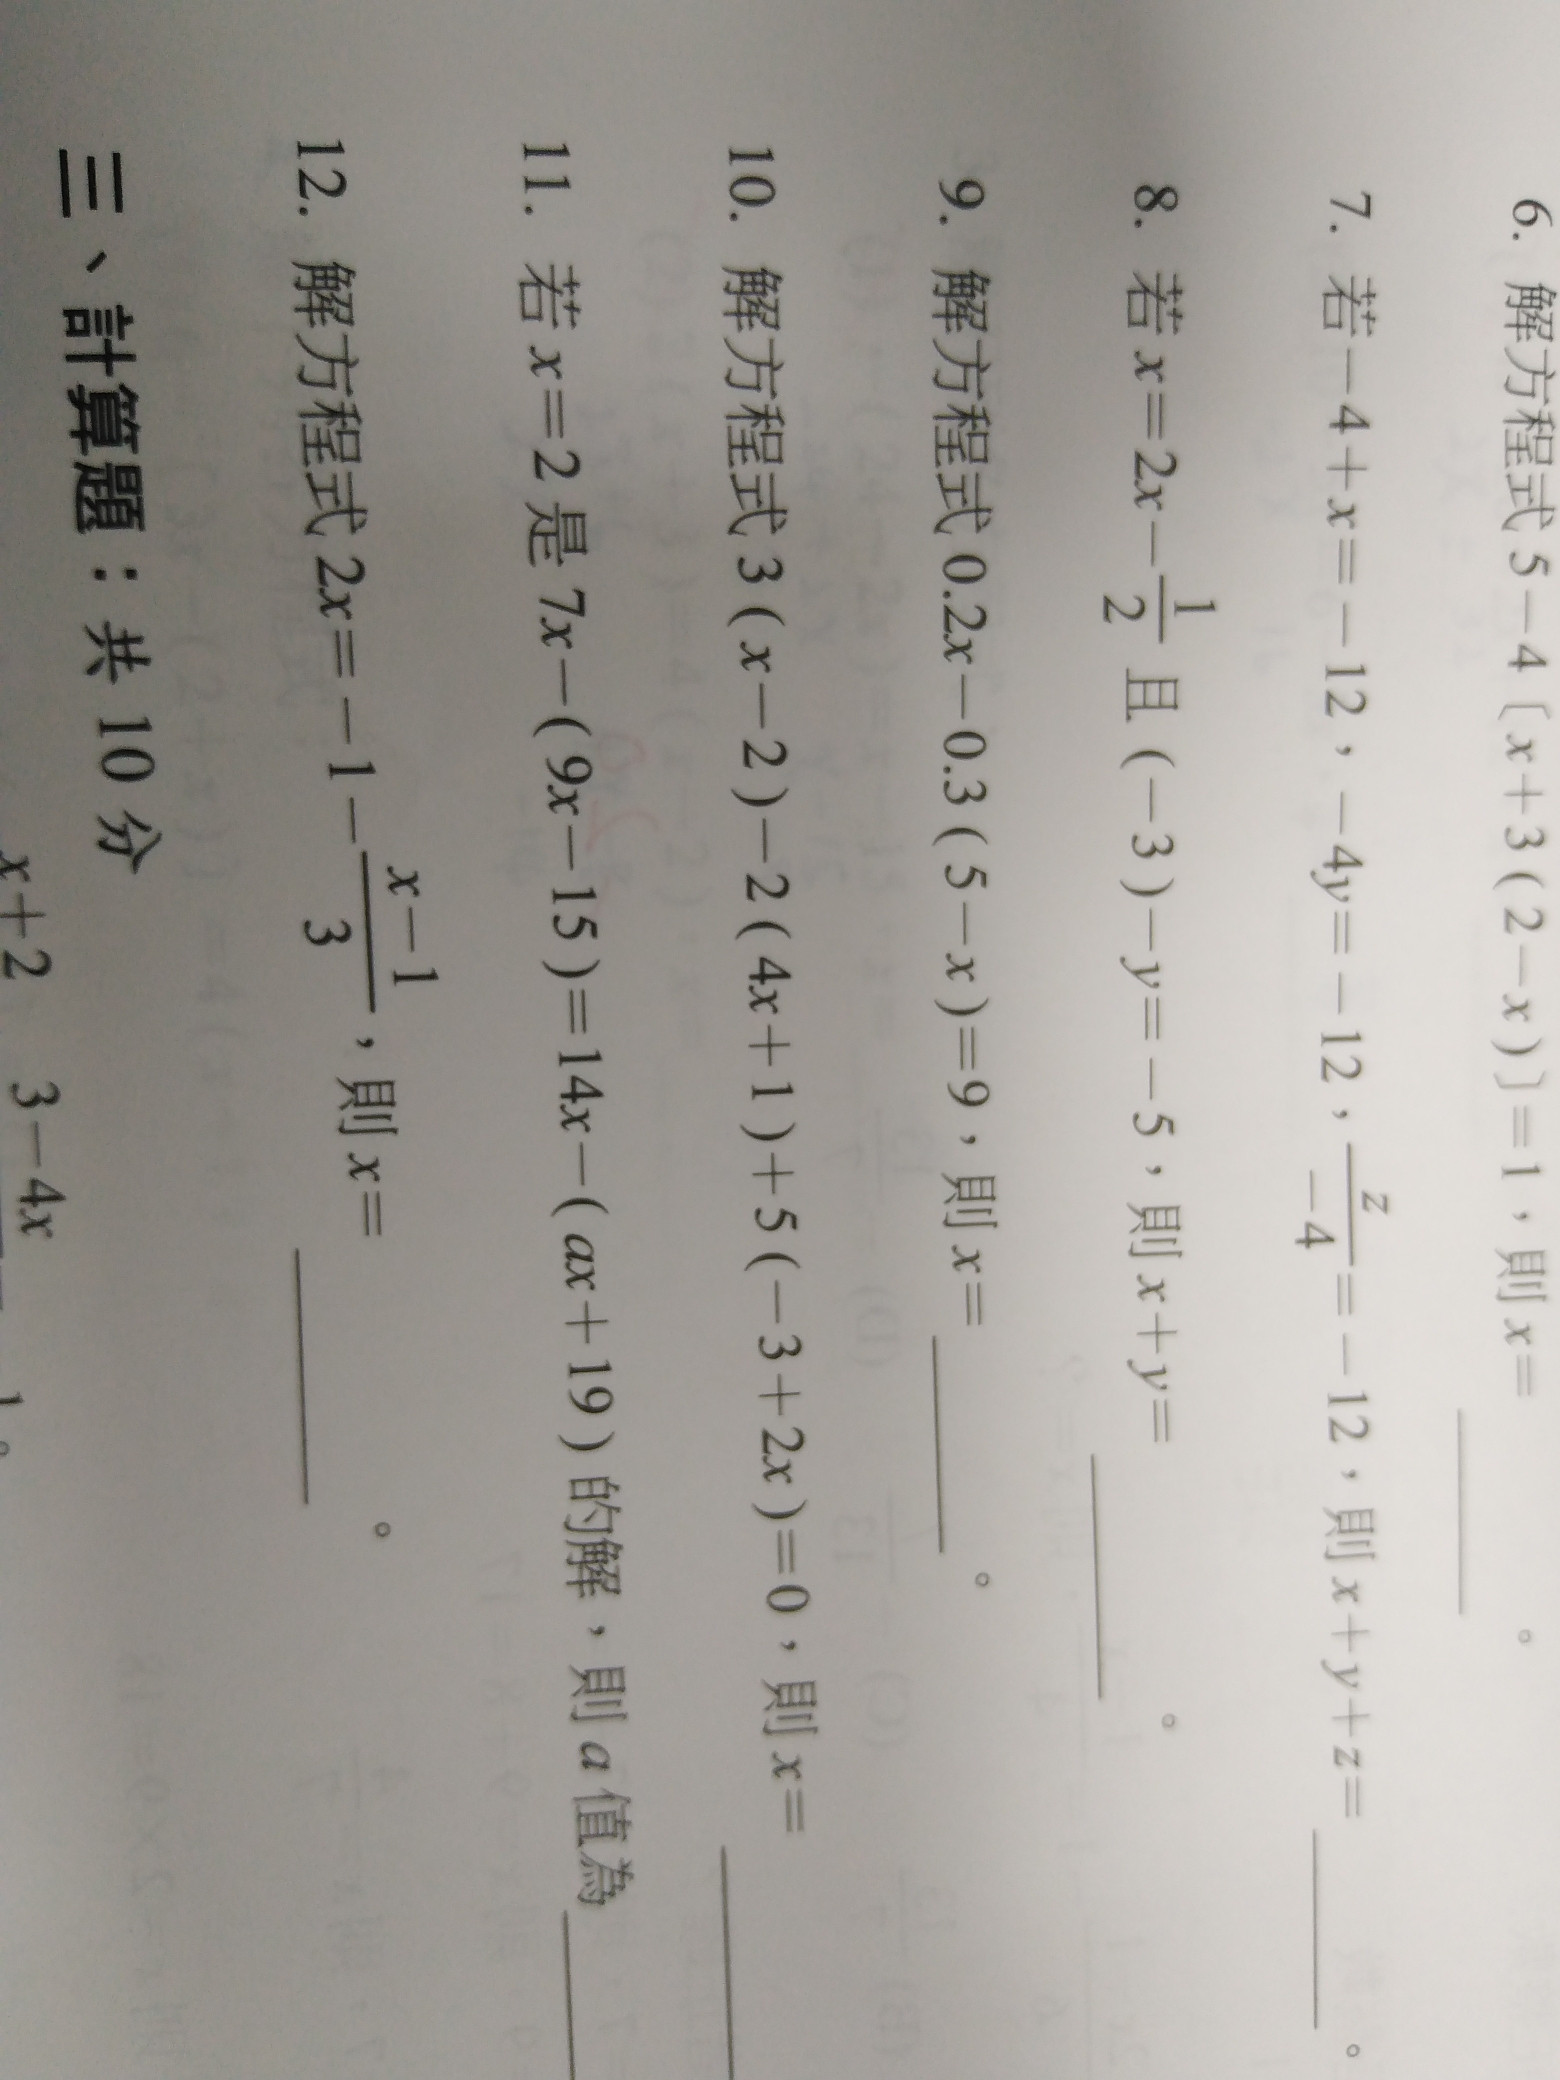 6. 解方程式 5－4〔x＋3(2－x)〕＝1，則 x＝＿＿＿＿。
7. 若－4＋x＝－12，－4y＝－12，z/－4＝－12，則 x＋y＋z＝＿＿＿＿。
8. 若 x＝2x－1/2 且 (－3)－y＝－5，則 x＋y＝＿＿＿＿。
9. 解方程式 0.2x－0.3(5－x)＝9，則 x＝＿＿＿＿。
10. 解方程式 3(x－2)－2(4x＋1)＋5(－3＋2x)＝0，則 x＝＿＿＿＿
11. 若 x＝2 是 7x－(9x－15)＝14x－(ax＋19) 的解，則 a 值為＿＿＿＿
12. 解方程式 2x＝－1－x－1/3，則 x＝＿＿＿＿。
三、計算題：共 10 分
x＋2 3－4x